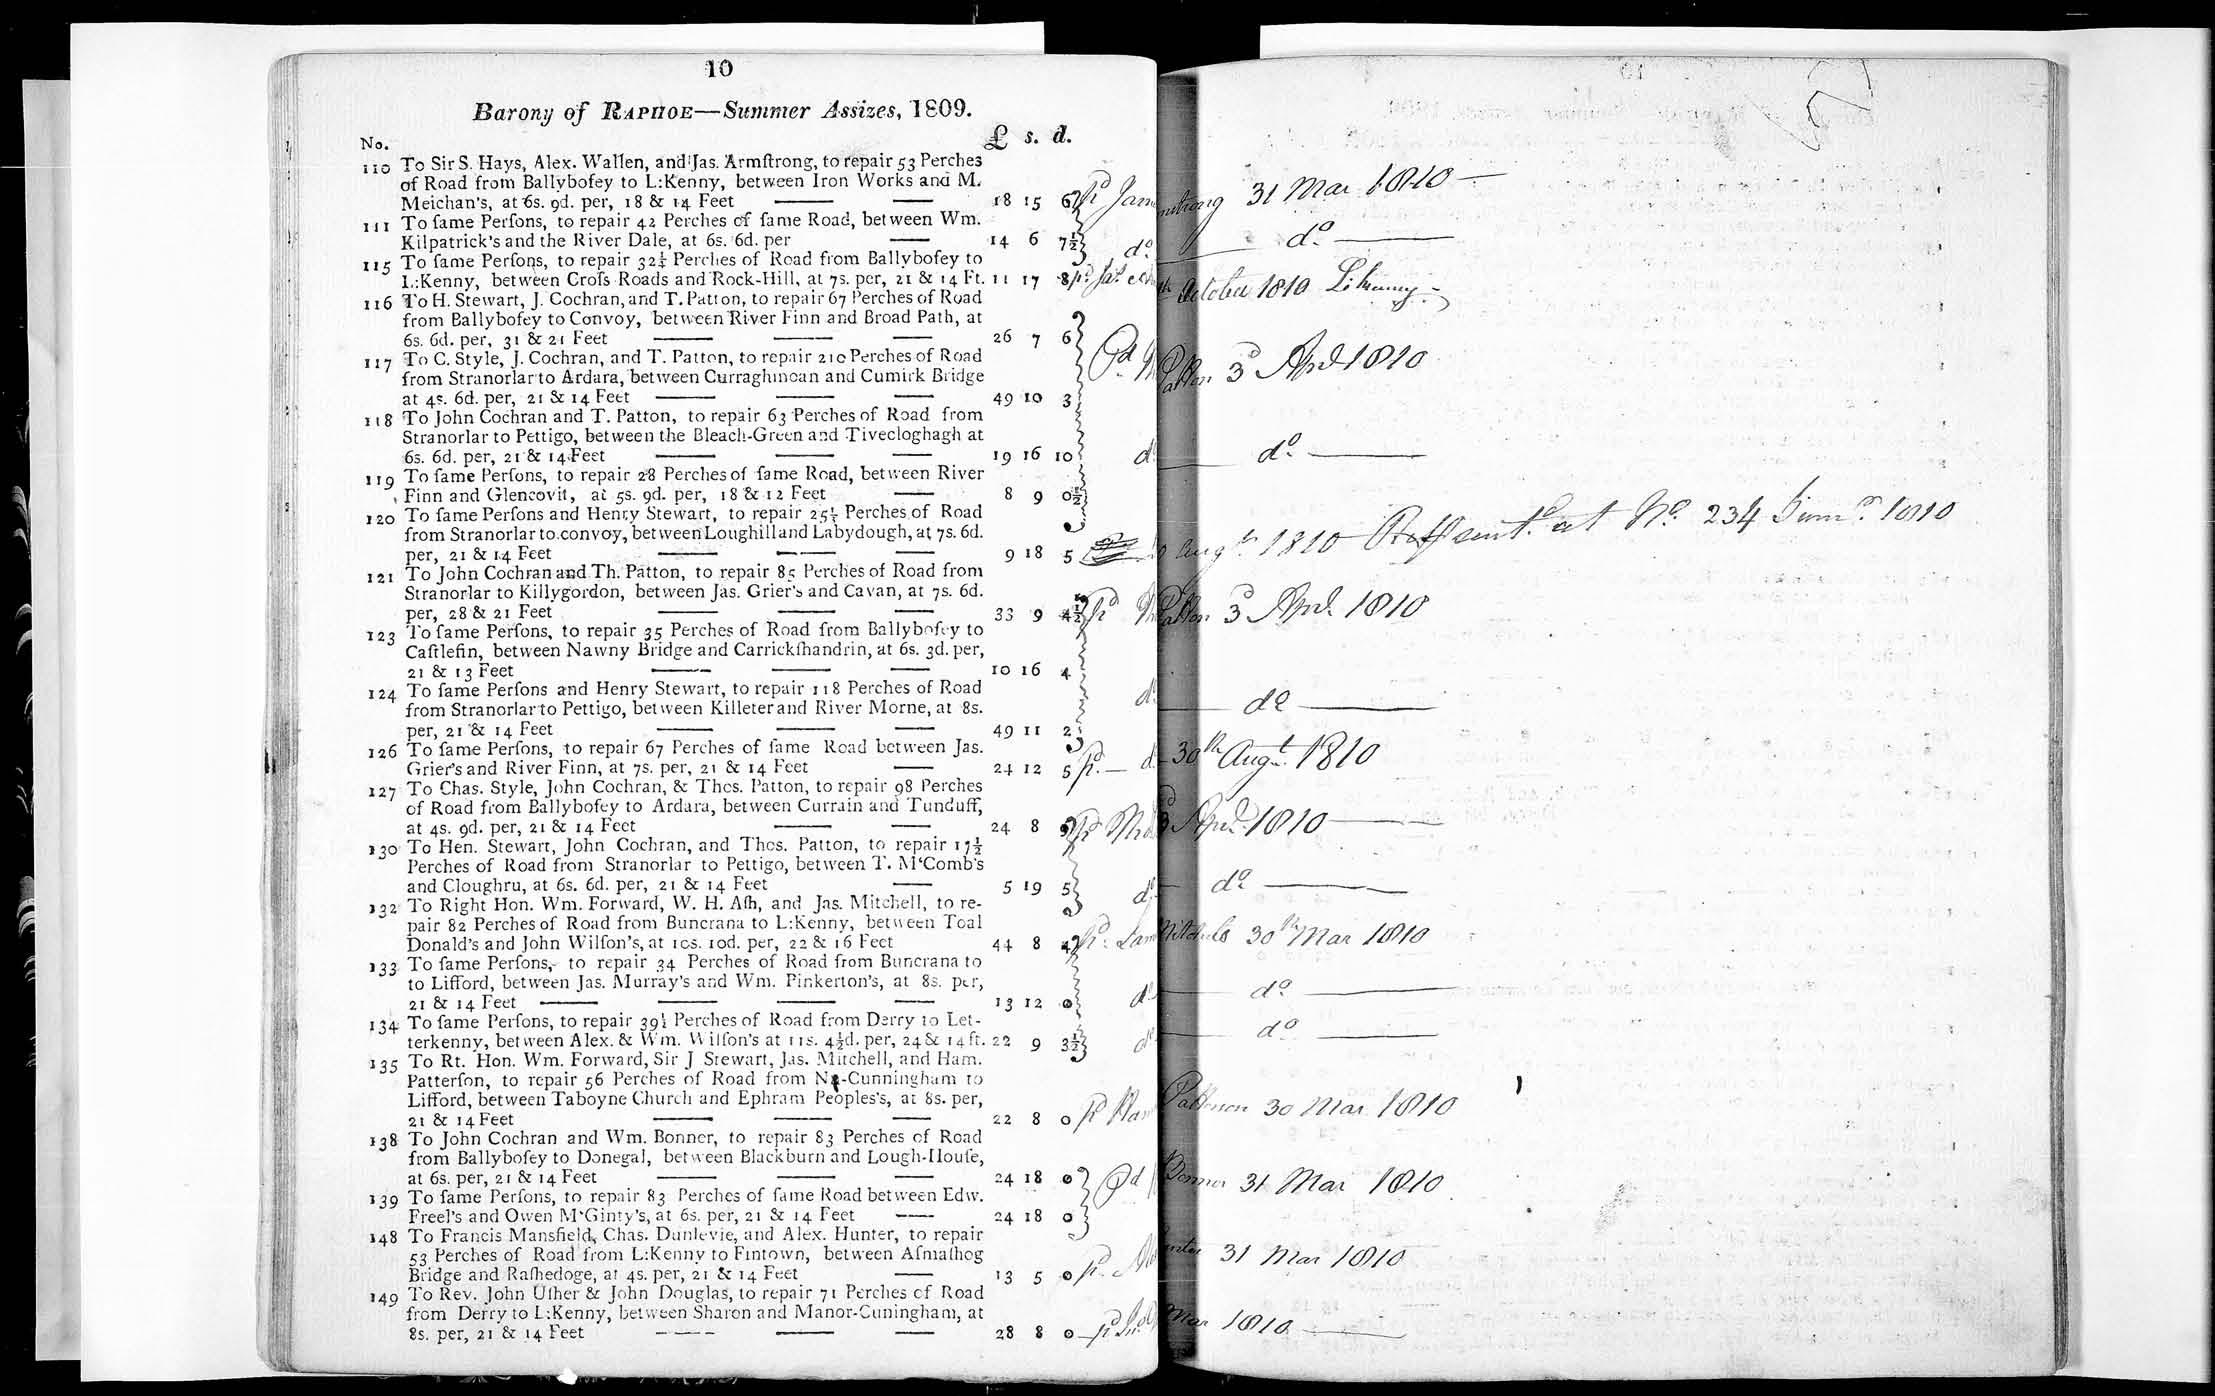 10
Barony of RAPHOE—Summer Assizes, 1809.
No. £ s. d.
110 To Sir S. Hays, Alex. Wallen, and Jas. Armſtrong, to repair 53 Perches
of Road from Ballybofey to L:Kenny, between Iron Works and M.
Meichan's, at 6s. 9d. per, 18 & 14 Feet —— —— 18 15 6
111 To ſame Perſons, to repair 42 Perches of ſame Road, between Wm.
Kilpatrick's and the River Dale, at 6s. 6d. per —— 14 6 7½
115 To ſame Perſons, to repair 32½ Perches of Road from Ballybofey to
L:Kenny, between Croſs Roads and Rock-Hill, at 7s. per, 21 & 14 Ft. 11 17 8
116 To H. Stewart, J. Cochran, and T. Patton, to repair 67 Perches of Road
from Ballybofey to Convoy, between River Finn and Broad Path, at
6s. 6d. per, 31 & 21 Feet —— —— —— 26 7 6
117 To C. Style, J. Cochran, and T. Patton, to repair 210 Perches of Road
from Stranorlar to Ardara, between Curraghinoan and Cumirk Bridge
at 4s. 6d. per, 21 & 14 Feet —— —— —— 49 10 3
118 To John Cochran and T. Patton, to repair 63 Perches of Road from
Stranorlar to Pettigo, between the Bleach-Green and Tivecloghagh at
6s. 6d. per, 21 & 14 Feet —— —— —— 19 16 10
119 To ſame Perſons, to repair 28 Perches of ſame Road, between River
Finn and Glencovit, at 5s. 9d. per, 18 & 12 Feet —— 8 9 0½
120 To ſame Perſons and Henry Stewart, to repair 25½ Perches of Road
from Stranorlar to convoy, between Loughill and Labydough, at 7s. 6d.
per, 21 & 14 Feet —— —— —— 9 18 5
121 To John Cochran and Th. Patton, to repair 85 Perches of Road from
Stranorlar to Killygordon, between Jas. Grier's and Cavan, at 7s. 6d.
per, 28 & 21 Feet —— —— —— 33 9 4½
123 To ſame Perſons, to repair 35 Perches of Road from Ballybofey to
Caſtlefin, between Nawny Bridge and Carrickſhandrin, at 6s. 3d. per,
21 & 13 Feet —— —— —— 10 16 4
124 To ſame Perſons and Henry Stewart, to repair 118 Perches of Road
from Stranorlar to Pettigo, between Killeter and River Morne, at 8s.
per, 21 & 14 Feet —— —— —— 49 11 2
126 To ſame Perſons, to repair 67 Perches of ſame Road between Jas.
Grier's and River Finn, at 7s. per, 21 & 14 Feet —— 24 12 5
127 To Chas. Style, John Cochran, & Thos. Patton, to repair 98 Perches
of Road from Ballybofey to Ardara, between Currain and Tunduff,
at 4s. 9d. per, 21 & 14 Feet —— —— 24 8 9
130 To Hen. Stewart, John Cochran, and Thos. Patton, to repair 17½
Perches of Road from Stranorlar to Pettigo, between T. M'Comb's
and Cloughru, at 6s. 6d. per, 21 & 14 Feet —— 5 19 5
132 To Right Hon. Wm. Forward, W. H. Aſh, and Jas. Mitchell, to re-
pair 82 Perches of Road from Buncrana to L:Kenny, between Toal
Donald's and John Wilſon's, at 10s. 10d. per, 22 & 16 Feet 44 8 4
133 To ſame Perſons, to repair 34 Perches of Road from Buncrana to
to Lifford, between Jas. Murray's and Wm. Pinkerton's, at 8s. per,
21 & 14 Feet —— —— —— —— 13 12 0
134 To ſame Perſons, to repair 39½ Perches of Road from Derry to Let-
terkenny, between Alex. & Wm. Wilſon's at 11s. 4½d. per, 24 & 14 ft. 22 9 3½
135 To Rt. Hon. Wm. Forward, Sir J Stewart, Jas. Mitchell, and Ham.
Patterſon, to repair 56 Perches of Road from N-Cunningham to
Lifford, between Taboyne Church and Ephram Peoples's, at 8s. per,
21 & 14 Feet —— —— —— 22 8 0
138 To John Cochran and Wm. Bonner, to repair 83 Perches of Road
from Ballybofey to Donegal, between Blackburn and Lough-Houſe,
at 6s. per, 21 & 14 Feet —— —— —— 24 18 0
139 To ſame Perſons, to repair 83 Perches of ſame Road between Edw.
Freel's and Owen M'Ginty's, at 6s. per, 21 & 14 Feet —— 24 18 0
148 To Francis Mansfield, Chas. Dunlevie, and Alex. Hunter, to repair
53 Perches of Road from L:Kenny to Fintown, between Aſmaſhog
Bridge and Raſhedoge, at 4s. per, 21 & 14 Feet —— 13 5 0
149 To Rev. John Uſher & John Douglas, to repair 71 Perches of Road
from Derry to L:Kenny, between Sharon and Manor-Cuningham, at
8s. per, 21 & 14 Feet —— —— —— 28 8 0
31 Mar 1810
do
October 1810
Patton 3d Aprl 1810
do
Augt 1810 at No. 234 Sumr. 1810
Patton 3d Aprl 1810
do
30th Augt 1810
3d Aprl 1810
do
30th Mar 1810
do
do
Patterson 30 Mar 1810
Bonner 31 Mar 1810
31 Mar 1810
Mar 1810